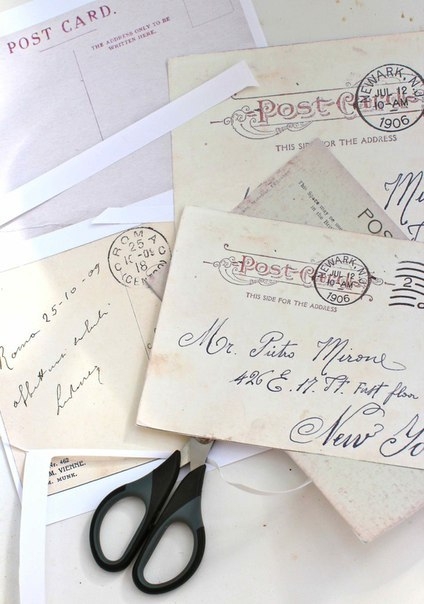 POST CARD.
THE ADDRESS ONLY TO BE
WRITTEN HERE.
Post Card
NEWARK, N.J.
JUL 12
10-AM
1906
THIS SIDE FOR THE ADDRESS
POS
ROMA
25
18
(CENTRO)
Roma 25-10-09
Post Card
NEWARK, N.J.
JUL 12
10-AM
1906
2
THIS SIDE FOR THE ADDRESS
Mr. Pietro Mirone
426 E. 17. St. First floor
New Yo
462
M. VIENNE.
MUNK.